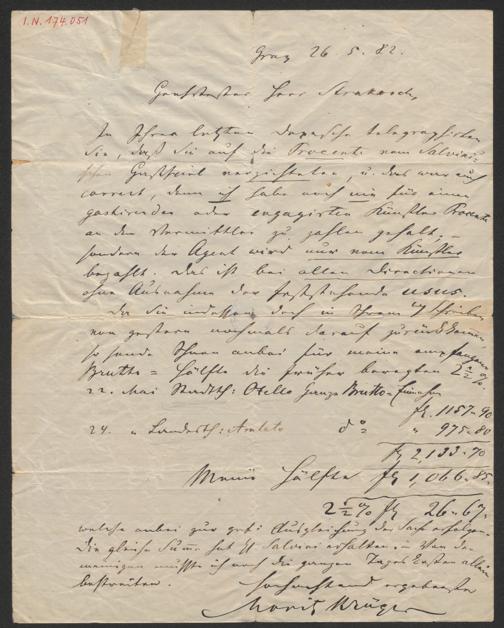 I.N. 174.051
Graz 26. 5. 82.
Geehrtester Herr Strakosch,
In Ihrer letzten Depesche telegraphirten
Sie, daß Sie auf die Procente vom Salvini-
schen Gastspiel verzichteten, u. das war auch
correct, denn ich habe noch nie für einen
gastirenden oder engagirten Künstler Procente
an den Vermittler zu zahlen gehabt, –
sondern der Agent wird nur vom Künstler
bezahlt. Das ist bei allen Directionen
ohne Ausnahme der feststehende usus.
Da Sie indessen doch in Ihrem Schreiben
von gestern nochmals darauf zurückkommen
so sende Ihnen anbei für meine empfangene
Brutto = Hälfte die früher bewegten 2 1/2 %.
22. Mai Stadtth: Otello Ganze Brutto-Einnahme
fl. 1157-90
24. " Landesth: Amleto do " 975-80
fl 2,133-70
Meine Hälfte fl 1,066.85.
2 1/2 % fl 26-67.
welche anbei zur gef: Ausgleichung der Sache erfolgen.
Die gleiche Summe hat Salvini erhalten. Von der
meinigen mußte ich noch die ganzen Tages Kosten allein
bestreiten.
Hochachtend ergebenster
Moritz Krüger